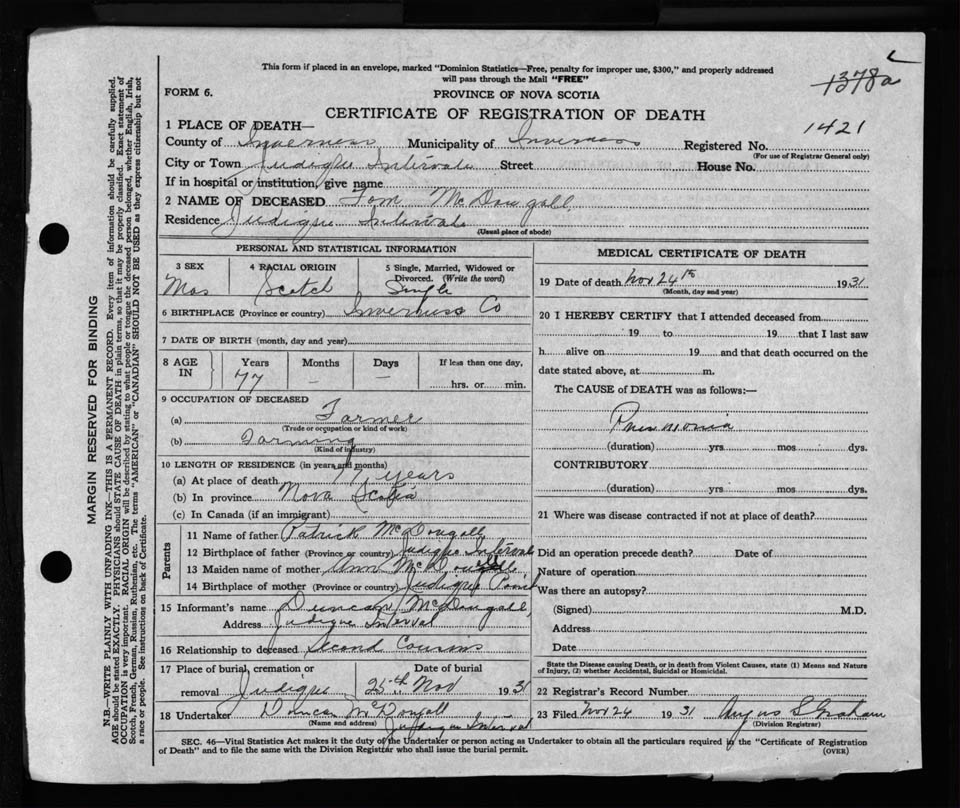 This form if placed in an envelope, marked "Dominion Statistics—Free, penalty for improper use, $300," and properly addressed
will pass through the Mail "FREE"
1378a
FORM 6.
PROVINCE OF NOVA SCOTIA
CERTIFICATE OF REGISTRATION OF DEATH
1421
1 PLACE OF DEATH—
County of Inverness Municipality of Inverness Registered No.
(For use of Registrar General only)
City or Town Judique Intervale Street House No.
If in hospital or institution, give name
2 NAME OF DECEASED Tom McDougall
Residence Judique Intervale
(Usual place of abode)
PERSONAL AND STATISTICAL INFORMATION
3 SEX 4 RACIAL ORIGIN 5 Single, Married, Widowed or Divorced. (Write the word)
Mas Scotch Single
6 BIRTHPLACE (Province or country) Inverness Co
7 DATE OF BIRTH (month, day and year)
8 AGE IN Years Months Days If less than one day,
77 — — hrs. or min.
9 OCCUPATION OF DECEASED
(a) Farmer
(Trade or occupation or kind of work)
(b) Farming
(Kind of industry)
10 LENGTH OF RESIDENCE (in years and months)
(a) At place of death 77 years
(b) In province Nova Scotia
(c) In Canada (if an immigrant)
Parents
11 Name of father Patrick McDougall
12 Birthplace of father (Province or country) Judique Interval
13 Maiden name of mother Ann McDougall
14 Birthplace of mother (Province or country) Judique
15 Informant's name Duncan McDougall
Address Judique Interval
16 Relationship to deceased Second Cousins
17 Place of burial, cremation or removal Judique
Date of burial 25th Nov 1931
18 Undertaker Duncan McDougall
(Name and address) Judique Interval
MEDICAL CERTIFICATE OF DEATH
19 Date of death Nov 24th 1931
(Month, day and year)
20 I HEREBY CERTIFY that I attended deceased from
19 to 19 that I last saw
h alive on 19 and that death occurred on the
date stated above, at m.
The CAUSE of DEATH was as follows:—
Pneumonia
(duration) yrs. mos dys.
CONTRIBUTORY
(duration) yrs. mos dys.
21 Where was disease contracted if not at place of death?
Did an operation precede death? Date of
Nature of operation
Was there an autopsy?
(Signed) M.D.
Address
Date
State the Disease causing Death, or in death from Violent Causes, state (1) Means and Nature
of Injury, (2) whether Accidental, Suicidal or Homicidal.
22 Registrar's Record Number
23 Filed Nov 24 1931 Angus S Graham
(Division Registrar)
SEC. 46—Vital Statistics Act makes it the duty of the Undertaker or person acting as Undertaker to obtain all the particulars required in the "Certificate of Registration
of Death" and to file the same with the Division Registrar who shall issue the burial permit.
(OVER)
MARGIN RESERVED FOR BINDING
N.B.—WRITE PLAINLY WITH UNFADING INK—THIS IS A PERMANENT RECORD. Every item of information should be carefully supplied.
AGE should be stated EXACTLY. PHYSICIANS should STATE CAUSE OF DEATH in plain terms, so that it may be properly classified. Exact statement of
OCCUPATION is very important. RACIAL ORIGIN will be described by stating to what people or tongue the deceased person belonged, whether English, Irish,
Scotch, French, German, Russian, Ruthenian, etc. The terms "AMERICAN" or "CANADIAN" SHOULD NOT BE USED as they express citizenship but not
a race or people. See instructions on back of Certificate.